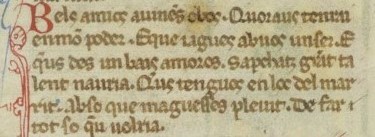 Bels amics auinens e bos. Quoraus tenrai
en mon poder. E que iagues ab uos un ser. E
q̃us des un bais amoros. Sapchatz grã ta
lent nauria. Qus tengues en loc del mar
rit. ab so que maguesses pleuit. De far
tot so q̃u uolria.